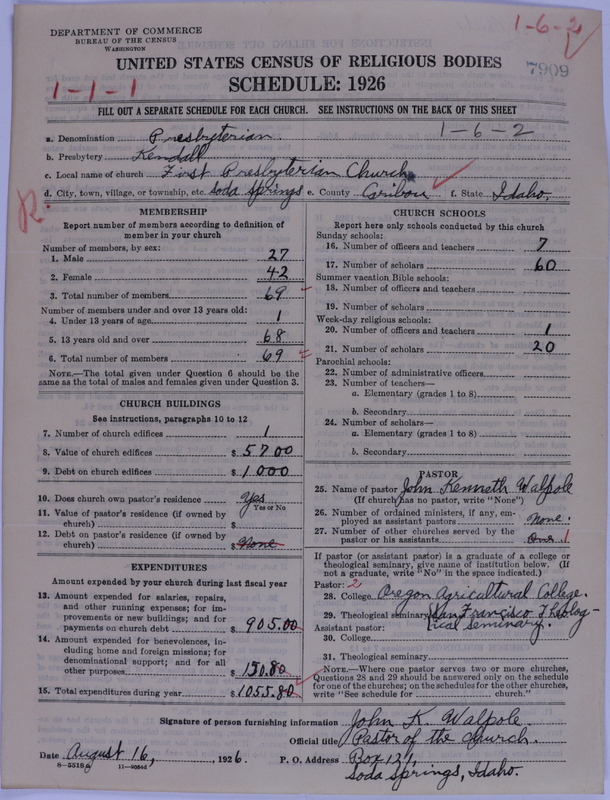 DEPARTMENT OF COMMERCE
BUREAU OF THE CENSUS
WASHINGTON
1-6-2
UNITED STATES CENSUS OF RELIGIOUS BODIES
7909
SCHEDULE: 1926
1-1-1
FILL OUT A SEPARATE SCHEDULE FOR EACH CHURCH. SEE INSTRUCTIONS ON THE BACK OF THIS SHEET
1-6-2
a. Denomination Presbyterian
b. Presbytery Kendall
c. Local name of church First Presbyterian Church
d. City, town, village, or township, etc. Soda Springs e. County Caribou f. State Idaho,
R.
MEMBERSHIP
Report number of members according to definition of
member in your church
Number of members, by sex:
1. Male 27
2. Female 42
3. Total number of members 69
Number of members under and over 13 years old:
4. Under 13 years of age 1
5. 13 years old and over 68
6. Total number of members 69
NOTE.—The total given under Question 6 should be the
same as the total of males and females given under Question 3.
CHURCH BUILDINGS
See instructions, paragraphs 10 to 12
7. Number of church edifices 1
8. Value of church edifices $ 5700
9. Debt on church edifices $ 1000
10. Does church own pastor's residence Yes
Yes or No
11. Value of pastor's residence (if owned by
church) $
12. Debt on pastor's residence (if owned by
church) $ None
EXPENDITURES
Amount expended by your church during last fiscal year
13. Amount expended for salaries, repairs,
and other running expenses; for im-
provements or new buildings; and for
payments on church debt $ 905.00
14. Amount expended for benevolences, in-
cluding home and foreign missions; for
denominational support; and for all
other purposes $ 150.80
15. Total expenditures during year $ 1055.80
CHURCH SCHOOLS
Report here only schools conducted by this church
Sunday schools:
16. Number of officers and teachers 7
17. Number of scholars 60
Summer vacation Bible schools:
18. Number of officers and teachers
19. Number of scholars
Week-day religious schools:
20. Number of officers and teachers 1
21. Number of scholars 20
Parochial schools:
22. Number of administrative officers
23. Number of teachers—
a. Elementary (grades 1 to 8)
b. Secondary
24. Number of scholars—
a. Elementary (grades 1 to 8)
b. Secondary
PASTOR
25. Name of pastor John Kenneth Walpole
(If church has no pastor, write "None")
26. Number of ordained ministers, if any, em-
ployed as assistant pastors None.
27. Number of other churches served by the
pastor or his assistants One. 1
If pastor (or assistant pastor) is a graduate of a college or
theological seminary, give name of institution below. (If
not a graduate, write "No" in the space indicated.)
Pastor: 2
28. College Oregon Agricultural College.
29. Theological seminary San Francisco Theolog-
Assistant pastor: ical Seminary.
30. College
31. Theological seminary
NOTE.—Where one pastor serves two or more churches,
Questions 28 and 29 should be answered only on the schedule
for one of the churches; on the schedules for the other churches,
write "See schedule for church."
Signature of person furnishing information John K. Walpole.
Official title Pastor of the Church.
Date August 16, 1926. P. O. Address Box 121,
Soda Springs, Idaho.